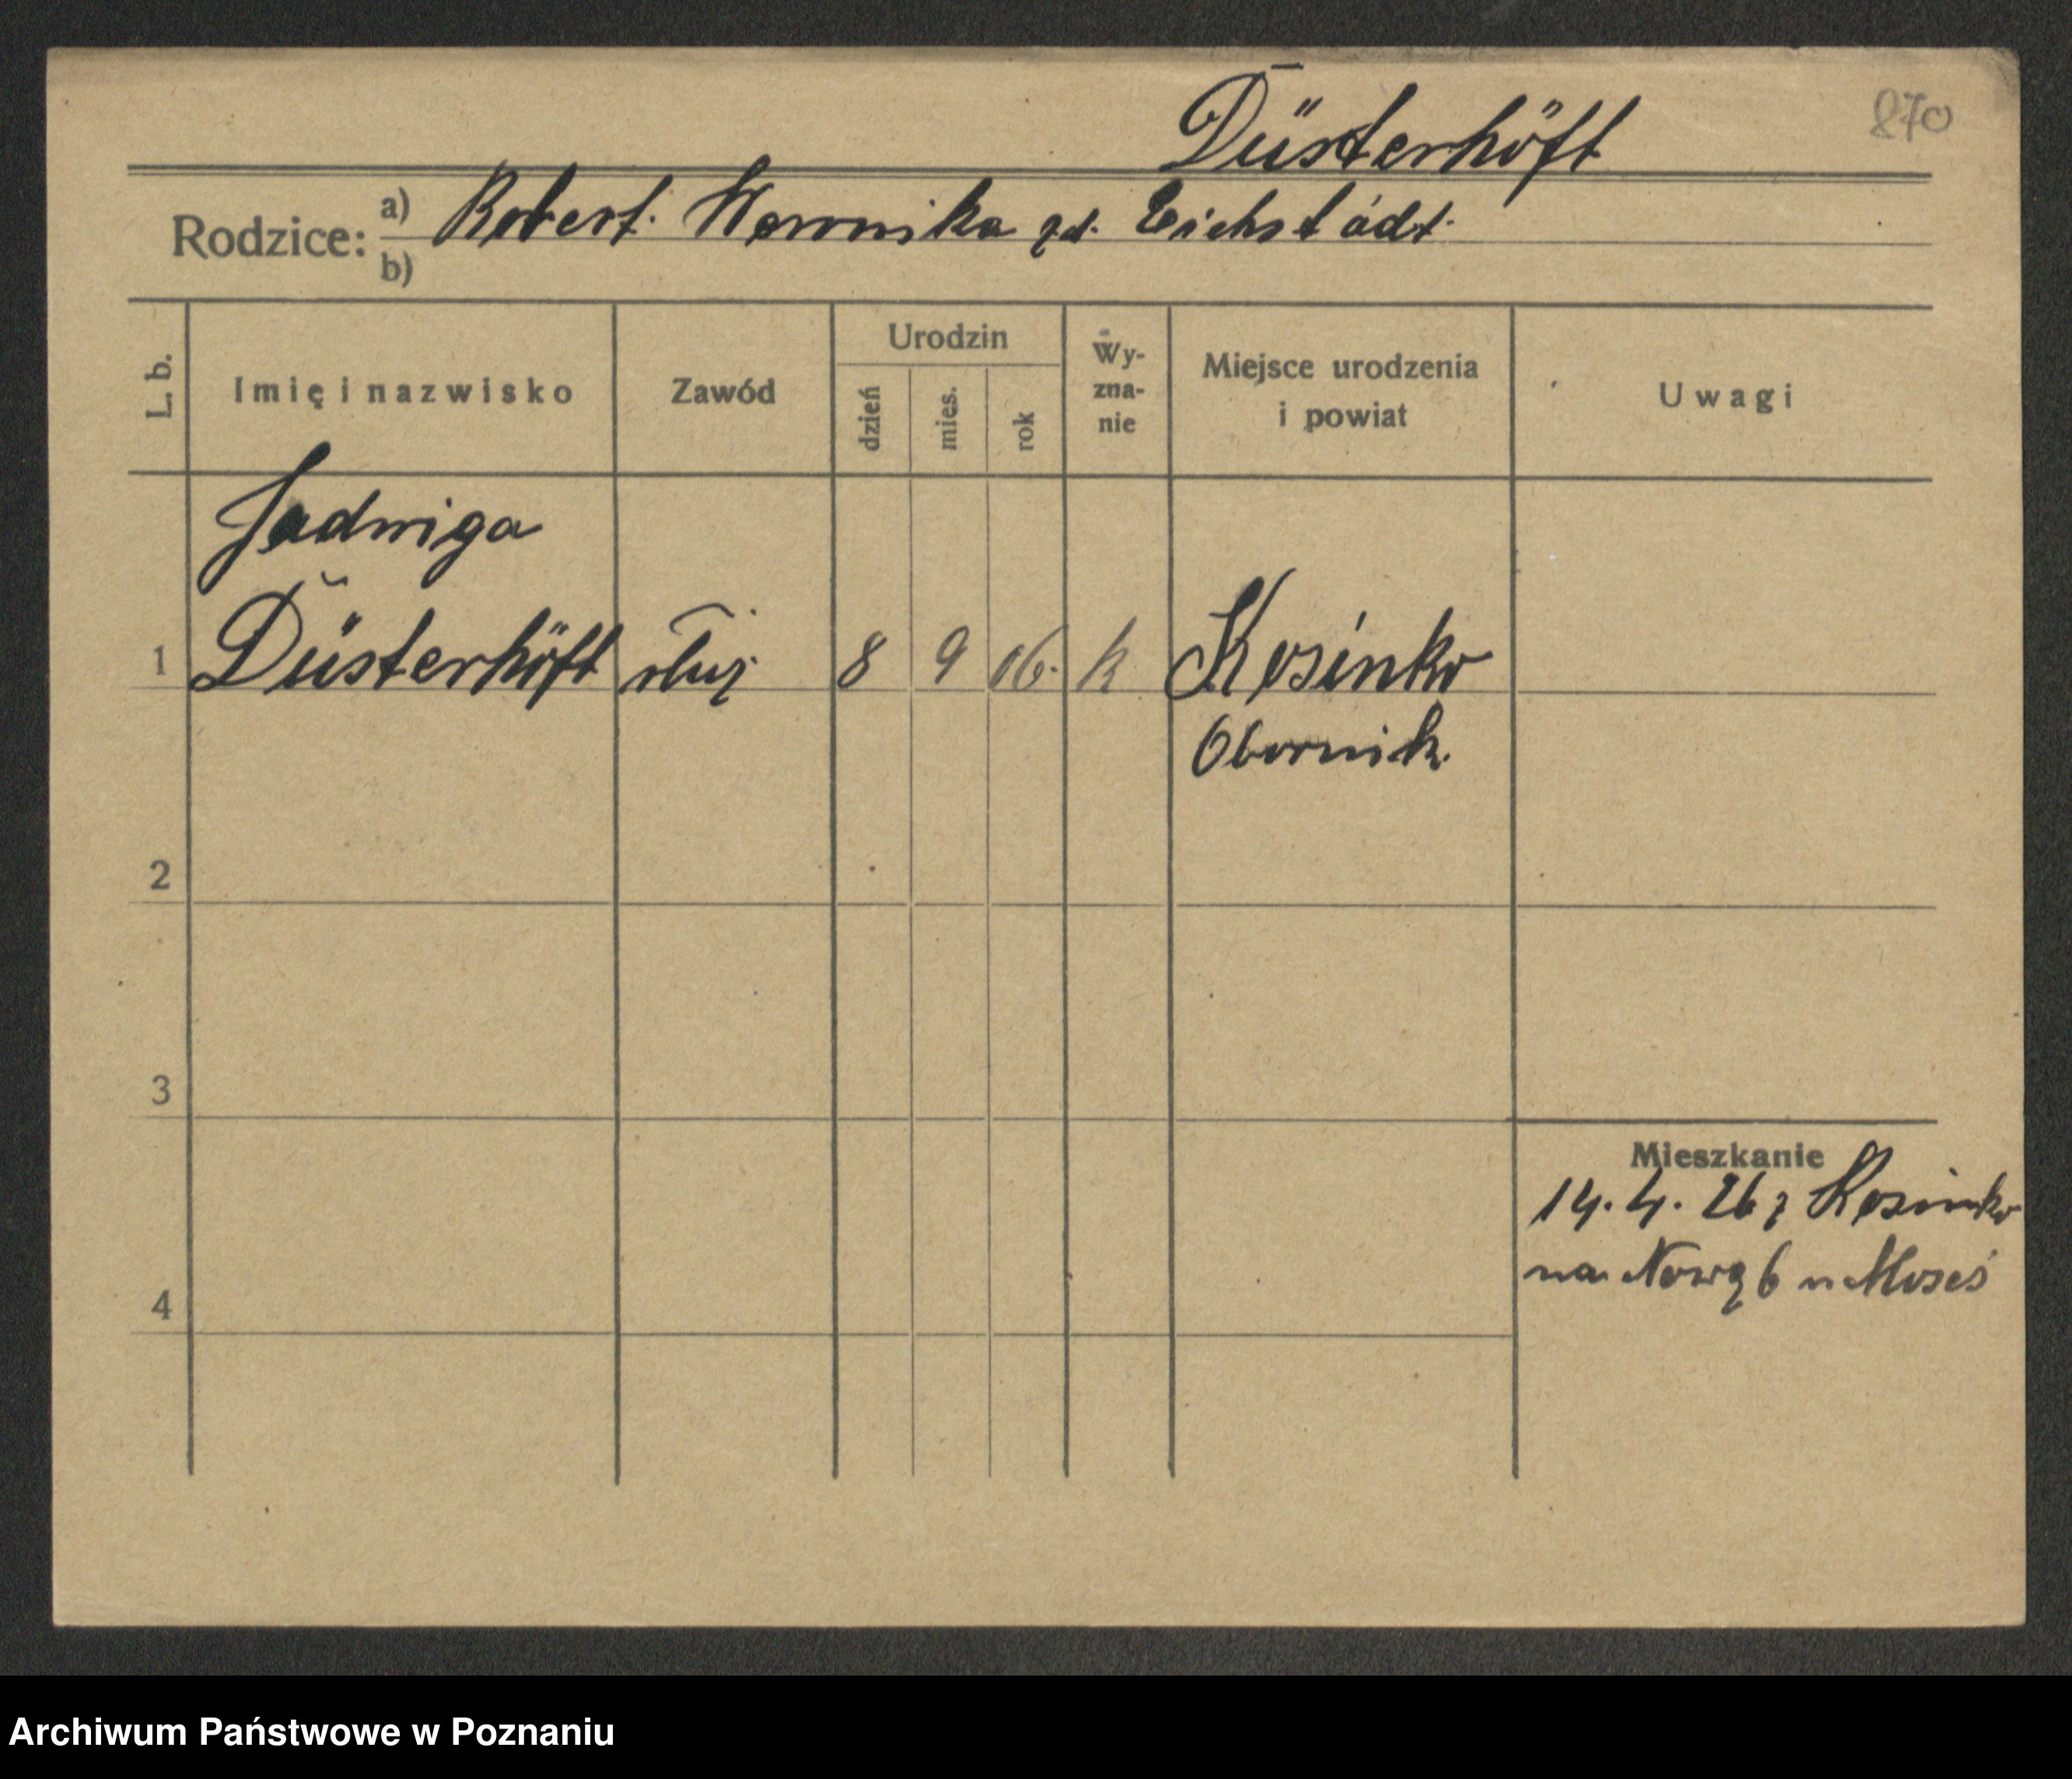 870
Düsterhöft
Rodzice: a) Robert. Weronika zd. Eichstädt.
b)
L. b.
Imię i nazwisko
Zawód
Urodzin
dzień
mies.
rok
Wy-
zna-
nie
Miejsce urodzenia
i powiat
Uwagi
Jadwiga
1 Düsterhöft służ. 8 9 06. k Kosinko
Obornik.
2
3
Mieszkanie
14. 4. 26 z Kosinko
na Nową 6 u Moses
4
Archiwum Państwowe w Poznaniu